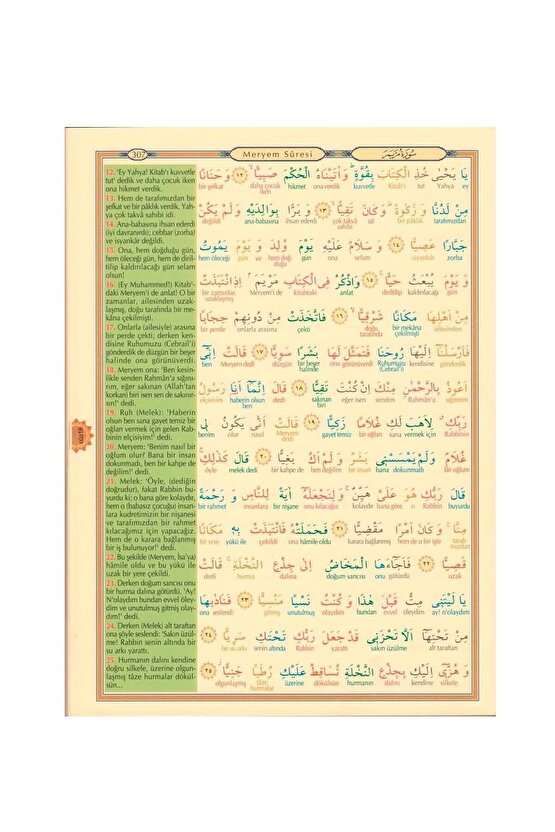 307
Meryem Sûresi
سورة مريم
12. 'Ey Yahya! Kitab'ı kuvvetle
tut' dedik ve daha çocuk iken
ona hikmet verdik.
13. Hem de tarafımızdan bir
şefkat ve bir pâklık verdik. Yah-
ya çok takvâ sahibi idi.
14. Ana-babasına ihsan ederdi
(iyi davranırdı); cebbar (zorba)
ve isyankâr değildi.
15. Ona, hem doğduğu gün,
hem öleceği gün, hem de diril-
tilip kaldırılacağı gün selam
olsun!
16. (Ey Muhammed!) Kitab'-
daki Meryem'i de anlat! O bir
zamanlar, ailesinden uzak-
laşmış, doğu tarafında bir me-
kâna çekilmişti.
17. Onlarla (ailesiyle) arasına
bir perde çekti; derken kendi-
sine Ruhumuzu (Cebrail'i)
gönderdik de düzgün bir beşer
halinde ona görünüverdi.
18. Meryem ona: 'Ben kesin-
likle senden Rahmân'a sığını-
rım, eğer sakınan (Allah'tan
korkan) biri isen sen de sakınır-
sın!' dedi.
19. Ruh (Melek): 'Haberin
olsun ben sana gayet temiz bir
oğlan vermek için gelen Rab-
binin elçisiyim!' dedi.
20. Meryem: 'Benim nasıl bir
oğlum olur! Bana bir insan
dokunmadı, ben bir kahpe de
değilim!' dedi.
21. Melek: 'Öyle, (dediğin
doğrudur), fakat Rabbin bu-
yurdu ki; o bana göre kolaydır,
hem o (babasız çocuğu) insan-
lara kudretimizin bir nişanesi
ve tarafımızdan bir rahmet
kılacağımız için yapacağız.
Hem de o karara bağlanmış
bir iş bulunuyor!' dedi.
22. Bu şekilde (Meryem, İsa'ya)
hâmile oldu ve bu yükü ile
uzak bir yere çekildi.
23. Derken doğum sancısı onu
bir hurma dalına götürdü. 'Ay!
N'olaydım bundan evvel öley-
dim ve unutulmuş gitmiş olay-
dım!' dedi.
24. Derken (Melek) alt taraftan
ona şöyle seslendi: 'Sakın üzül-
me! Rabbin senin altında bir
su arkı yarattı.
25. Hurmanın dalını kendine
doğru silkele, üzerine olgun-
laşmış tâze hurmalar dökül-
sün...
يَا يَحْيٰى خُذِ الْكِتَابَ بِقُوَّةٍ وَاٰتَيْنَاهُ الْحُكْمَ صَبِيًّا ﴿١٢﴾ وَحَنَانًا
bir şefkat daha çocuk iken hikmet ona verdik kuvvetle Kitab'ı tut Yahya ey
مِنْ لَدُنَّا وَزَكٰوةً وَكَانَ تَقِيًّا ﴿١٣﴾ وَبَرًّا بِوَالِدَيْهِ وَلَمْ يَكُنْ
değildi ana-babasına ihsan ederdi çok takvâ sahibi idi bir pâklık tarafımızdan
جَبَّارًا عَصِيًّا ﴿١٤﴾ وَسَلَامٌ عَلَيْهِ يَوْمَ وُلِدَ وَيَوْمَ يَمُوتُ
hem öleceği gün ve hem doğ- duğu gün ona selam isyankâr zorba
وَيَوْمَ يُبْعَثُ حَيًّا ﴿١٥﴾ وَاذْكُرْ فِي الْكِتَابِ مَرْيَمَ اِذِ انْتَبَذَتْ
bir zamanlar, uzaklaşmış Meryem'i de kitabtaki anlat diriltilip kaldırılacağı gün
مِنْ اَهْلِهَا مَكَانًا شَرْقِيًّا ﴿١٦﴾ فَاتَّخَذَتْ مِنْ دُونِهِمْ حِجَابًا
bir perde onlarla arasına çekti doğu tarafında bir mekâna çekilmişti ailesinden
فَاَرْسَلْنَا اِلَيْهَا رُوحَنَا فَتَمَثَّلَ لَهَا بَشَرًا سَوِيًّا ﴿١٧﴾ قَالَتْ اِنِّي
ben dedi düzgün bir beşer halinde ona görünüverdi Ruhumuzu (Cebrail'i) kendisine gönderdik
اَعُوذُ بِالرَّحْمٰنِ مِنْكَ اِنْ كُنْتَ تَقِيًّا ﴿١٨﴾ قَالَ اِنَّمَا اَنَا رَسُولُ
elçisiyim ben haberin olsun dedi sakınan biri isen eğer senden Rahmân'a sığınırım
رَبِّكِ لِاَهَبَ لَكِ غُلَامًا زَكِيًّا ﴿١٩﴾ قَالَتْ اَنّٰى يَكُونُ لِي
benim olur nasıl dedi gayet temiz bir oğlan sana vermek için Rabbinin
غُلَامٌ وَلَمْ يَمْسَسْنِي بَشَرٌ وَلَمْ اَكُ بَغِيًّا ﴿٢٠﴾ قَالَ كَذٰلِكِ
öyle melek dedi bir kahpe de ben değilim bir insan bana dokunmadı bir oğlum
قَالَ رَبُّكِ هُوَ عَلَيَّ هَيِّنٌ وَلِنَجْعَلَهُ اٰيَةً لِلنَّاسِ وَرَحْمَةً
bir rahmet insanlara bir nişanesi onu kılacağız kolaydır bana göre o Rabbin buyurdu
مِنَّا وَكَانَ اَمْرًا مَقْضِيًّا ﴿٢١﴾ فَحَمَلَتْهُ فَانْتَبَذَتْ بِهِ مَكَانًا
bir yere yükü ile çekildi ona hâmile oldu karara bağlanmış hem de o bir iştir tarafı- mızdan
قَصِيًّا ﴿٢٢﴾ فَاَجَاءَهَا الْمَخَاضُ اِلٰى جِذْعِ النَّخْلَةِ قَالَتْ
dedi hurma dalına doğum sancısı onu götürdü uzak
يَا لَيْتَنِي مِتُّ قَبْلَ هٰذَا وَكُنْتُ نَسْيًا مَنْسِيًّا ﴿٢٣﴾ فَنَادٰيهَا
ona seslendi gitmiş unutulmuş olaydım bundan evvel öleydim ay! n'olaydım
مِنْ تَحْتِهَا اَلَّا تَحْزَنِي قَدْ جَعَلَ رَبُّكِ تَحْتَكِ سَرِيًّا ﴿٢٤﴾
bir su arkı senin altında Rabbin yarattı sakın üzülme alt taraftan
وَهُزِّي اِلَيْكِ بِجِذْعِ النَّخْلَةِ تُسَاقِطْ عَلَيْكِ رُطَبًا جَنِيًّا ﴿٢٥﴾
olgunlaşmış tâze hurmalar üzerine dökülsün hurmanın dalını kendine silkele